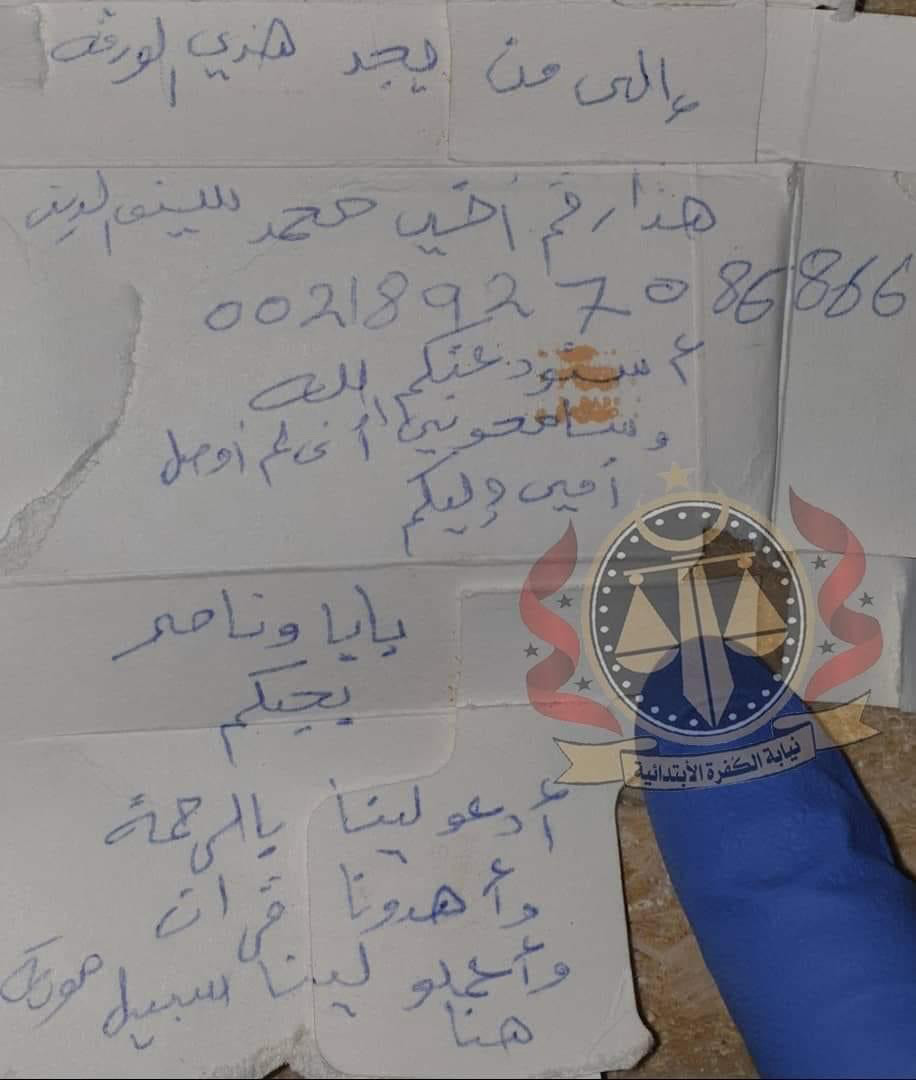 إلى من يجد هذي لورقة
هذا رقم أخي محمد سيف لدين
00218927086866
أستودعتكم الله
وسامحوني أني لم أوصل
أمي إليكم
بابا وناصر
يحبكم
أدعو لينا بالرحمة
وأهدونا قرآن
وأعملو لينا سبيل
هنا
نيابة الكفرة الأبتدائية